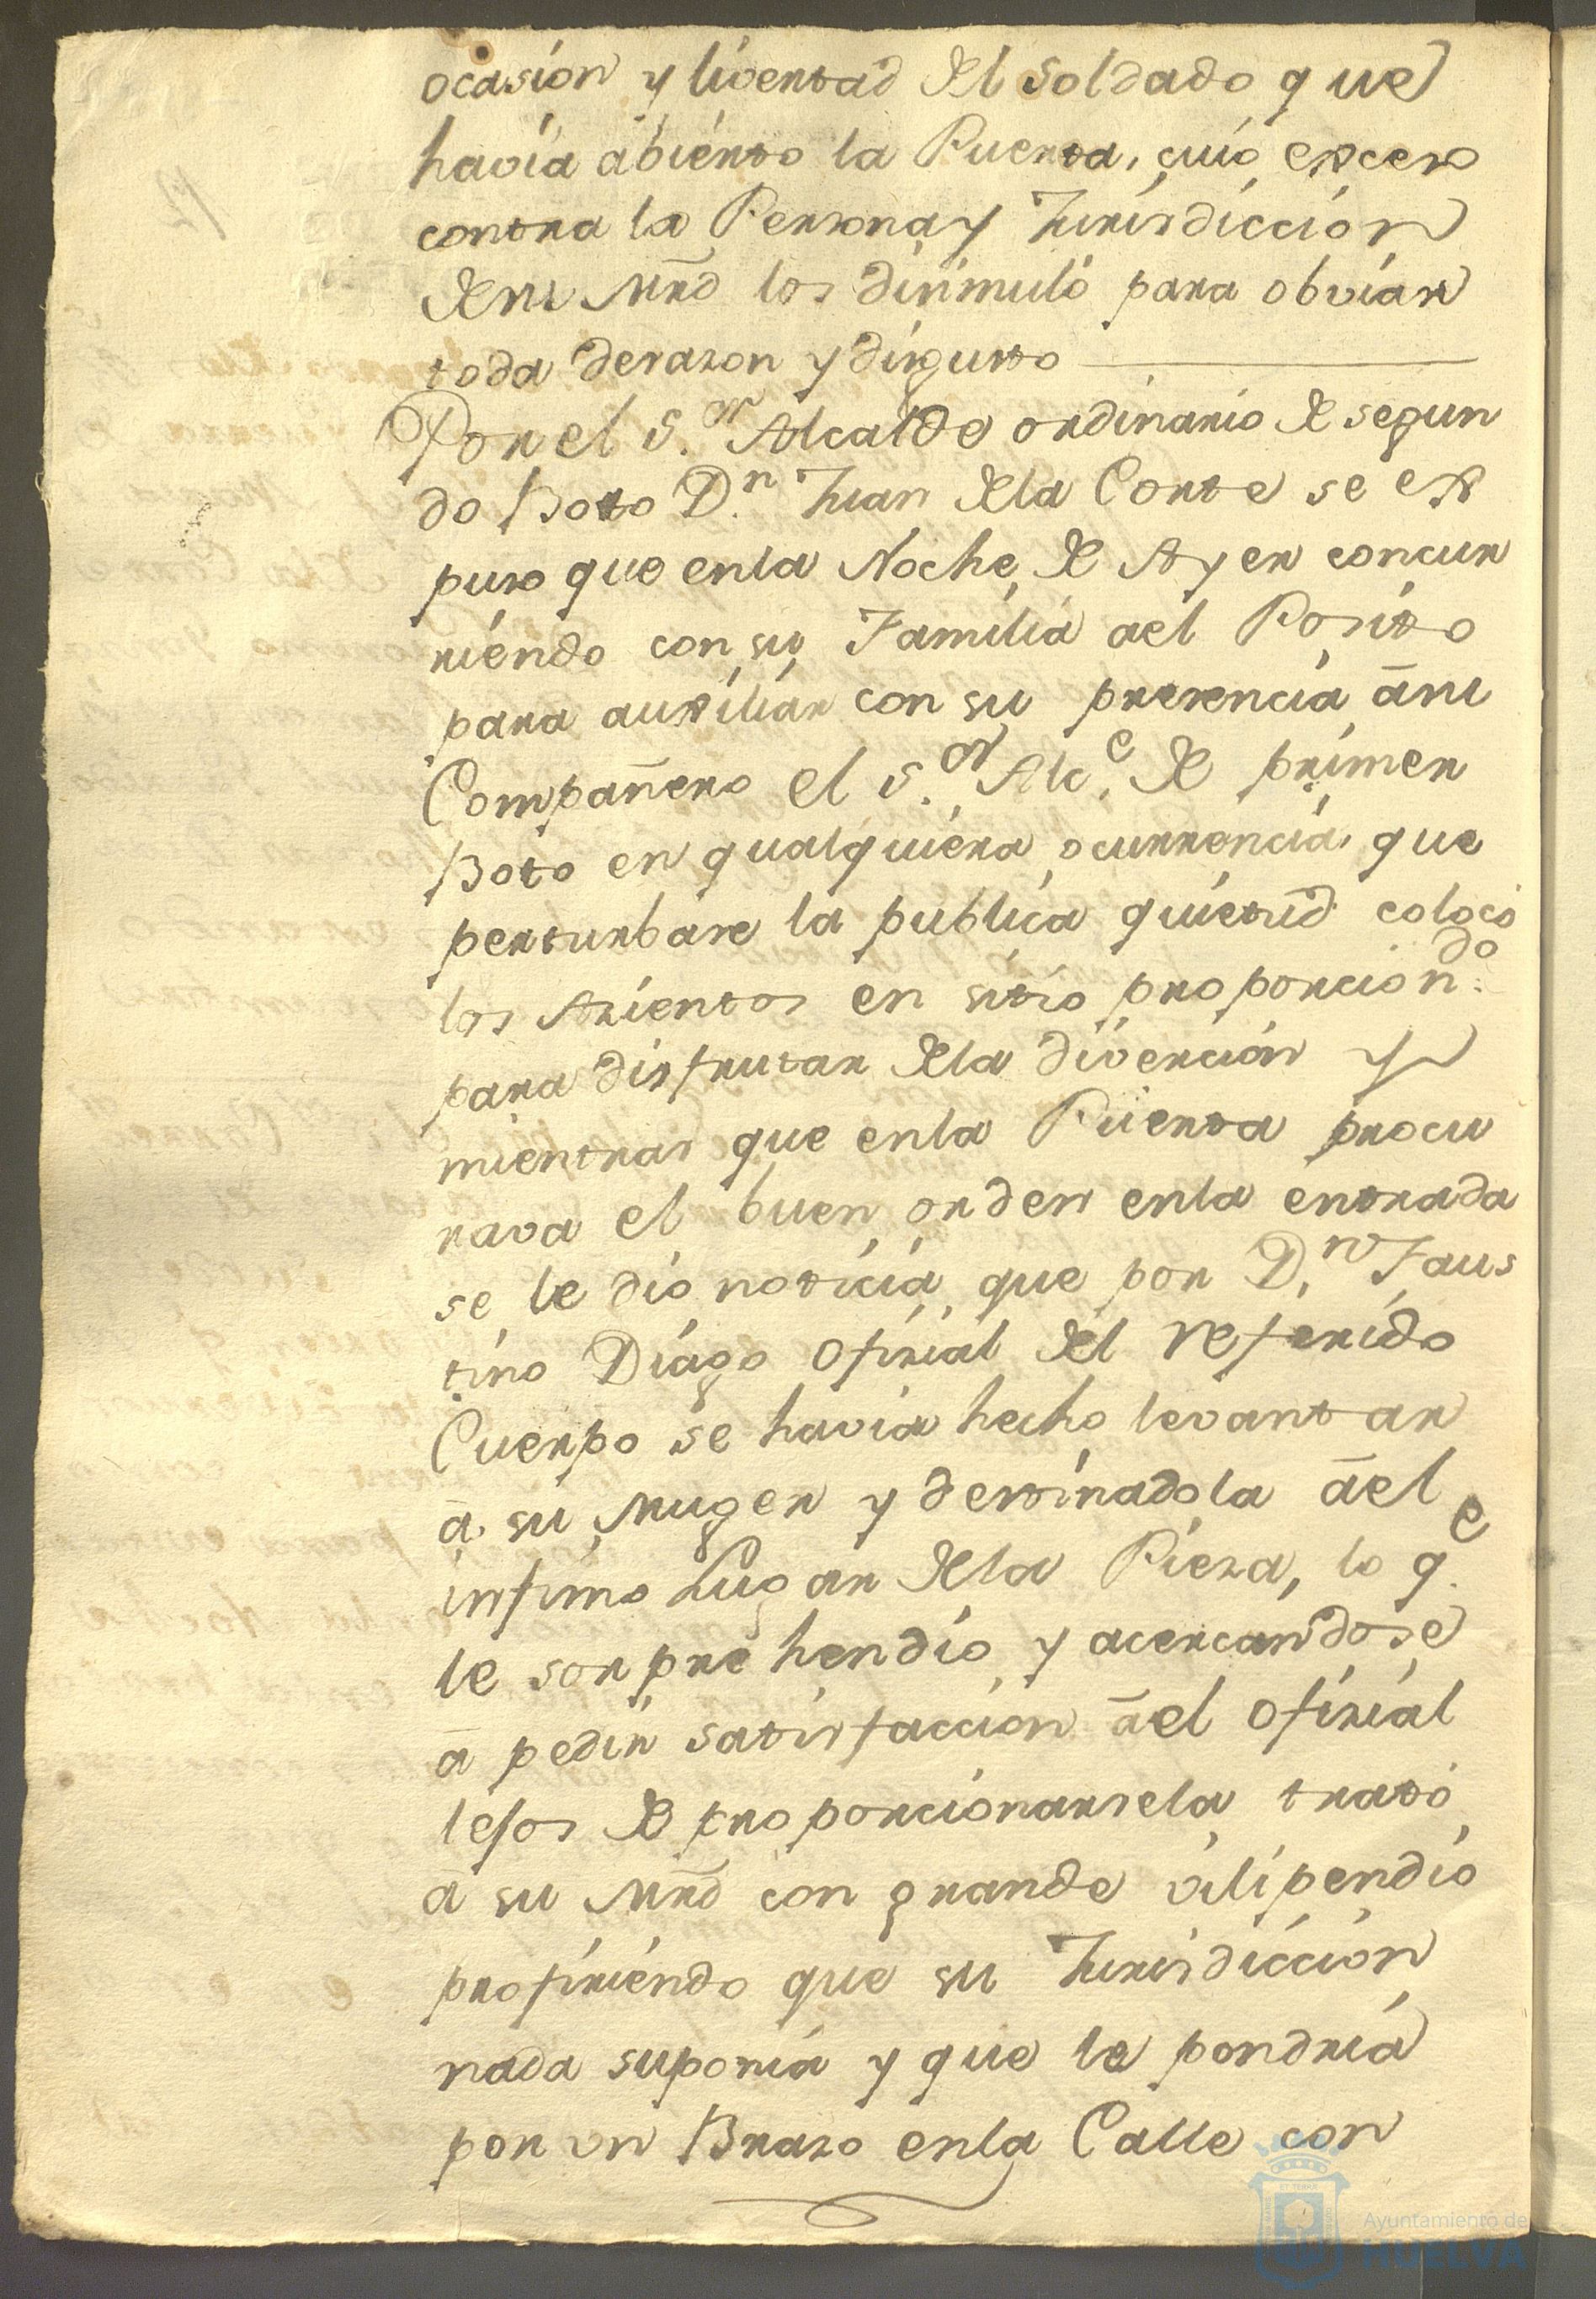 ocasion y livertad del soldado que
havia abierto la Puerta, cuio exceso
contra la Persona y Jurisdiccion
de su Mrd los disimuló para obviar
toda desazon y disgusto
Por el S.or Alcalde ordinario de segun
do Boto D.n Juan de la Corte se ex
puso que enla Noche de Ayer concur
riendo con su Familia ael Posito
para auxiliar con su presencia a su
Compañero el S.or Alc.e de primer
Boto en qualquiera ocurrencia que
perturbase la publica quietud colocó
los Asientos en sitio proporcion.do
para disfrutar dela diversion y
mientras que enla Puerta procu
rava el buen orden enla entrada
se le dio noticia que por D.n Faus
tino Diago Ofizial del referido
Cuerpo se havia hecho levantar
a su Muger y destinadola ael
infimo Lugar dela Pieza, lo q.e
le sorprehendio y acercandose
a pedir satisfaccion ael Ofizial
lejos de proporcionarsela trató
a su Mrd con grande vilipendio
profiriendo que su Jurisdiccion
nada suponia y que le pondria
por un Brazo enla Calle con
Ayuntamiento de
HUELVA